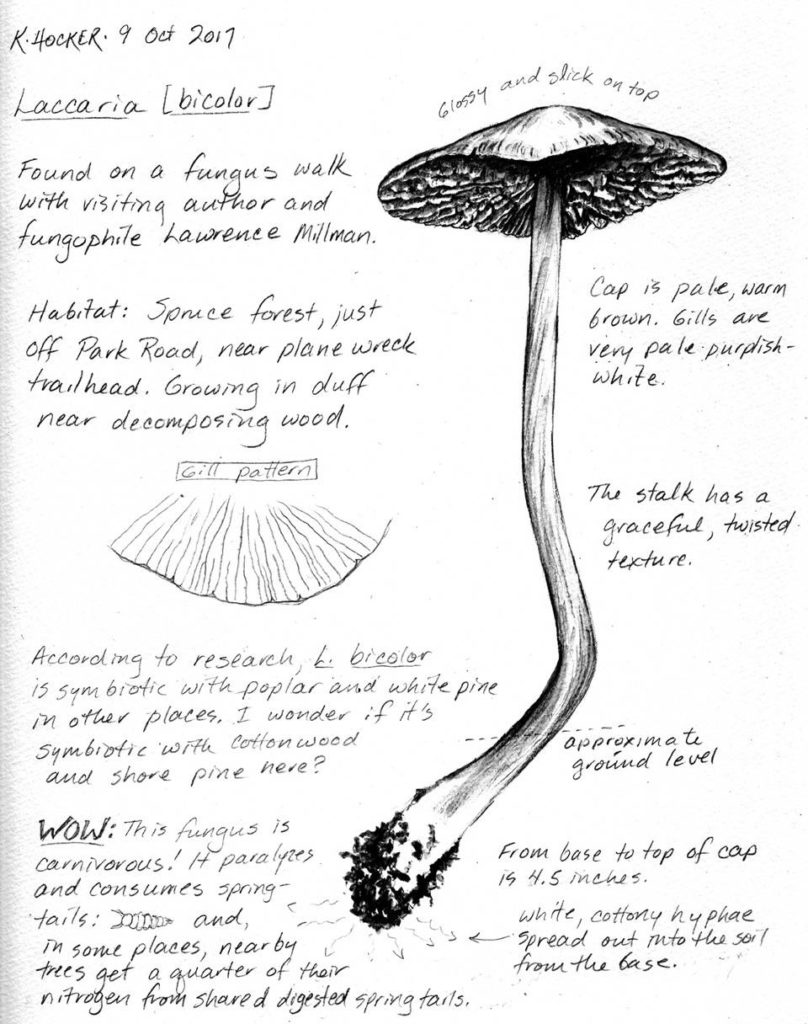 K. HOCKER. 9 Oct 2017
Laccaria [bicolor]
Glossy and slick on top
Found on a fungus walk
with visiting author and
fungophile Lawrence Millman.
Habitat: Spruce forest, just
off Park Road, near plane wreck
trailhead. Growing in duff
near decomposing wood.
Cap is pale, warm
brown. Gills are
very pale purplish-
white.
Gill pattern
The stalk has a
graceful, twisted
texture.
According to research, L. bicolor
is symbiotic with poplar and white pine
in other places. I wonder if it's
symbiotic with cottonwood
and shore pine here?
approximate
ground level
WOW: This fungus is
carnivorous! It paralyzes
and consumes spring-
tails: and,
in some places, nearby
trees get a quarter of their
nitrogen from shared digested springtails.
From base to top of cap
is 4.5 inches.
white, cottony hyphae
spread out into the soil
from the base.